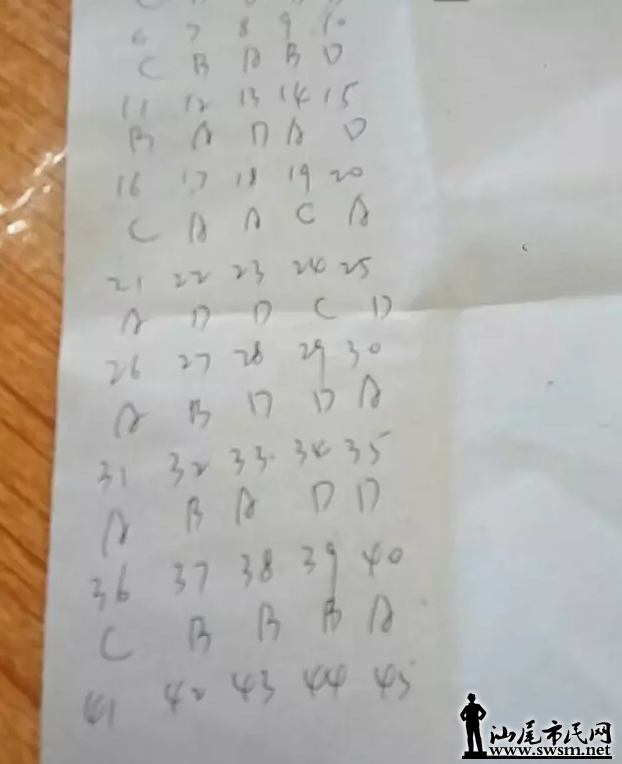 6 7 8 9 10
C B A B D
11 12 13 14 15
B A D A D
16 17 18 19 20
C A A C A
21 22 23 24 25
A D D C D
26 27 28 29 30
A B D D A
31 32 33 34 35
A B A D D
36 37 38 39 40
C B B B A
41 42 43 44 45
汕尾市民网
www.swsm.net